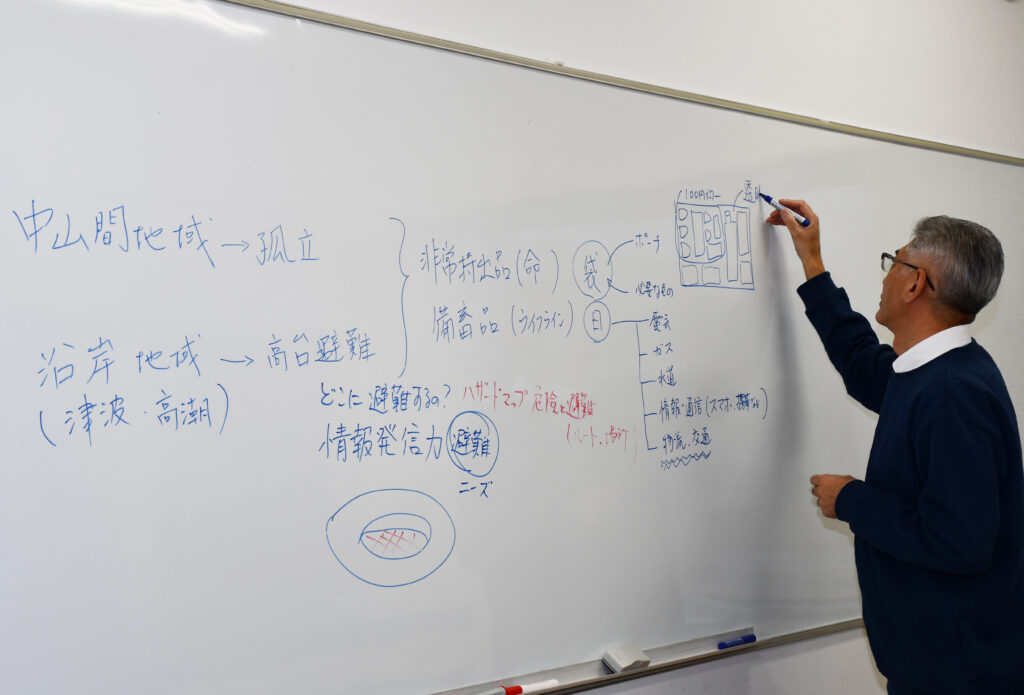 中山間地域 → 孤立
沿岸地域 → 高台避難
(津波・高潮)
非常持出品(命)
備蓄品(ライフライン)
袋
ポーチ
必要なもの
日
電気
ガス
水道
情報・通信(スマホ、
物流、交通
100円
透
どこに避難するの?
ハザードマップ 危険と避難
(ルート、場所)
情報発信力 避難
ニーズ